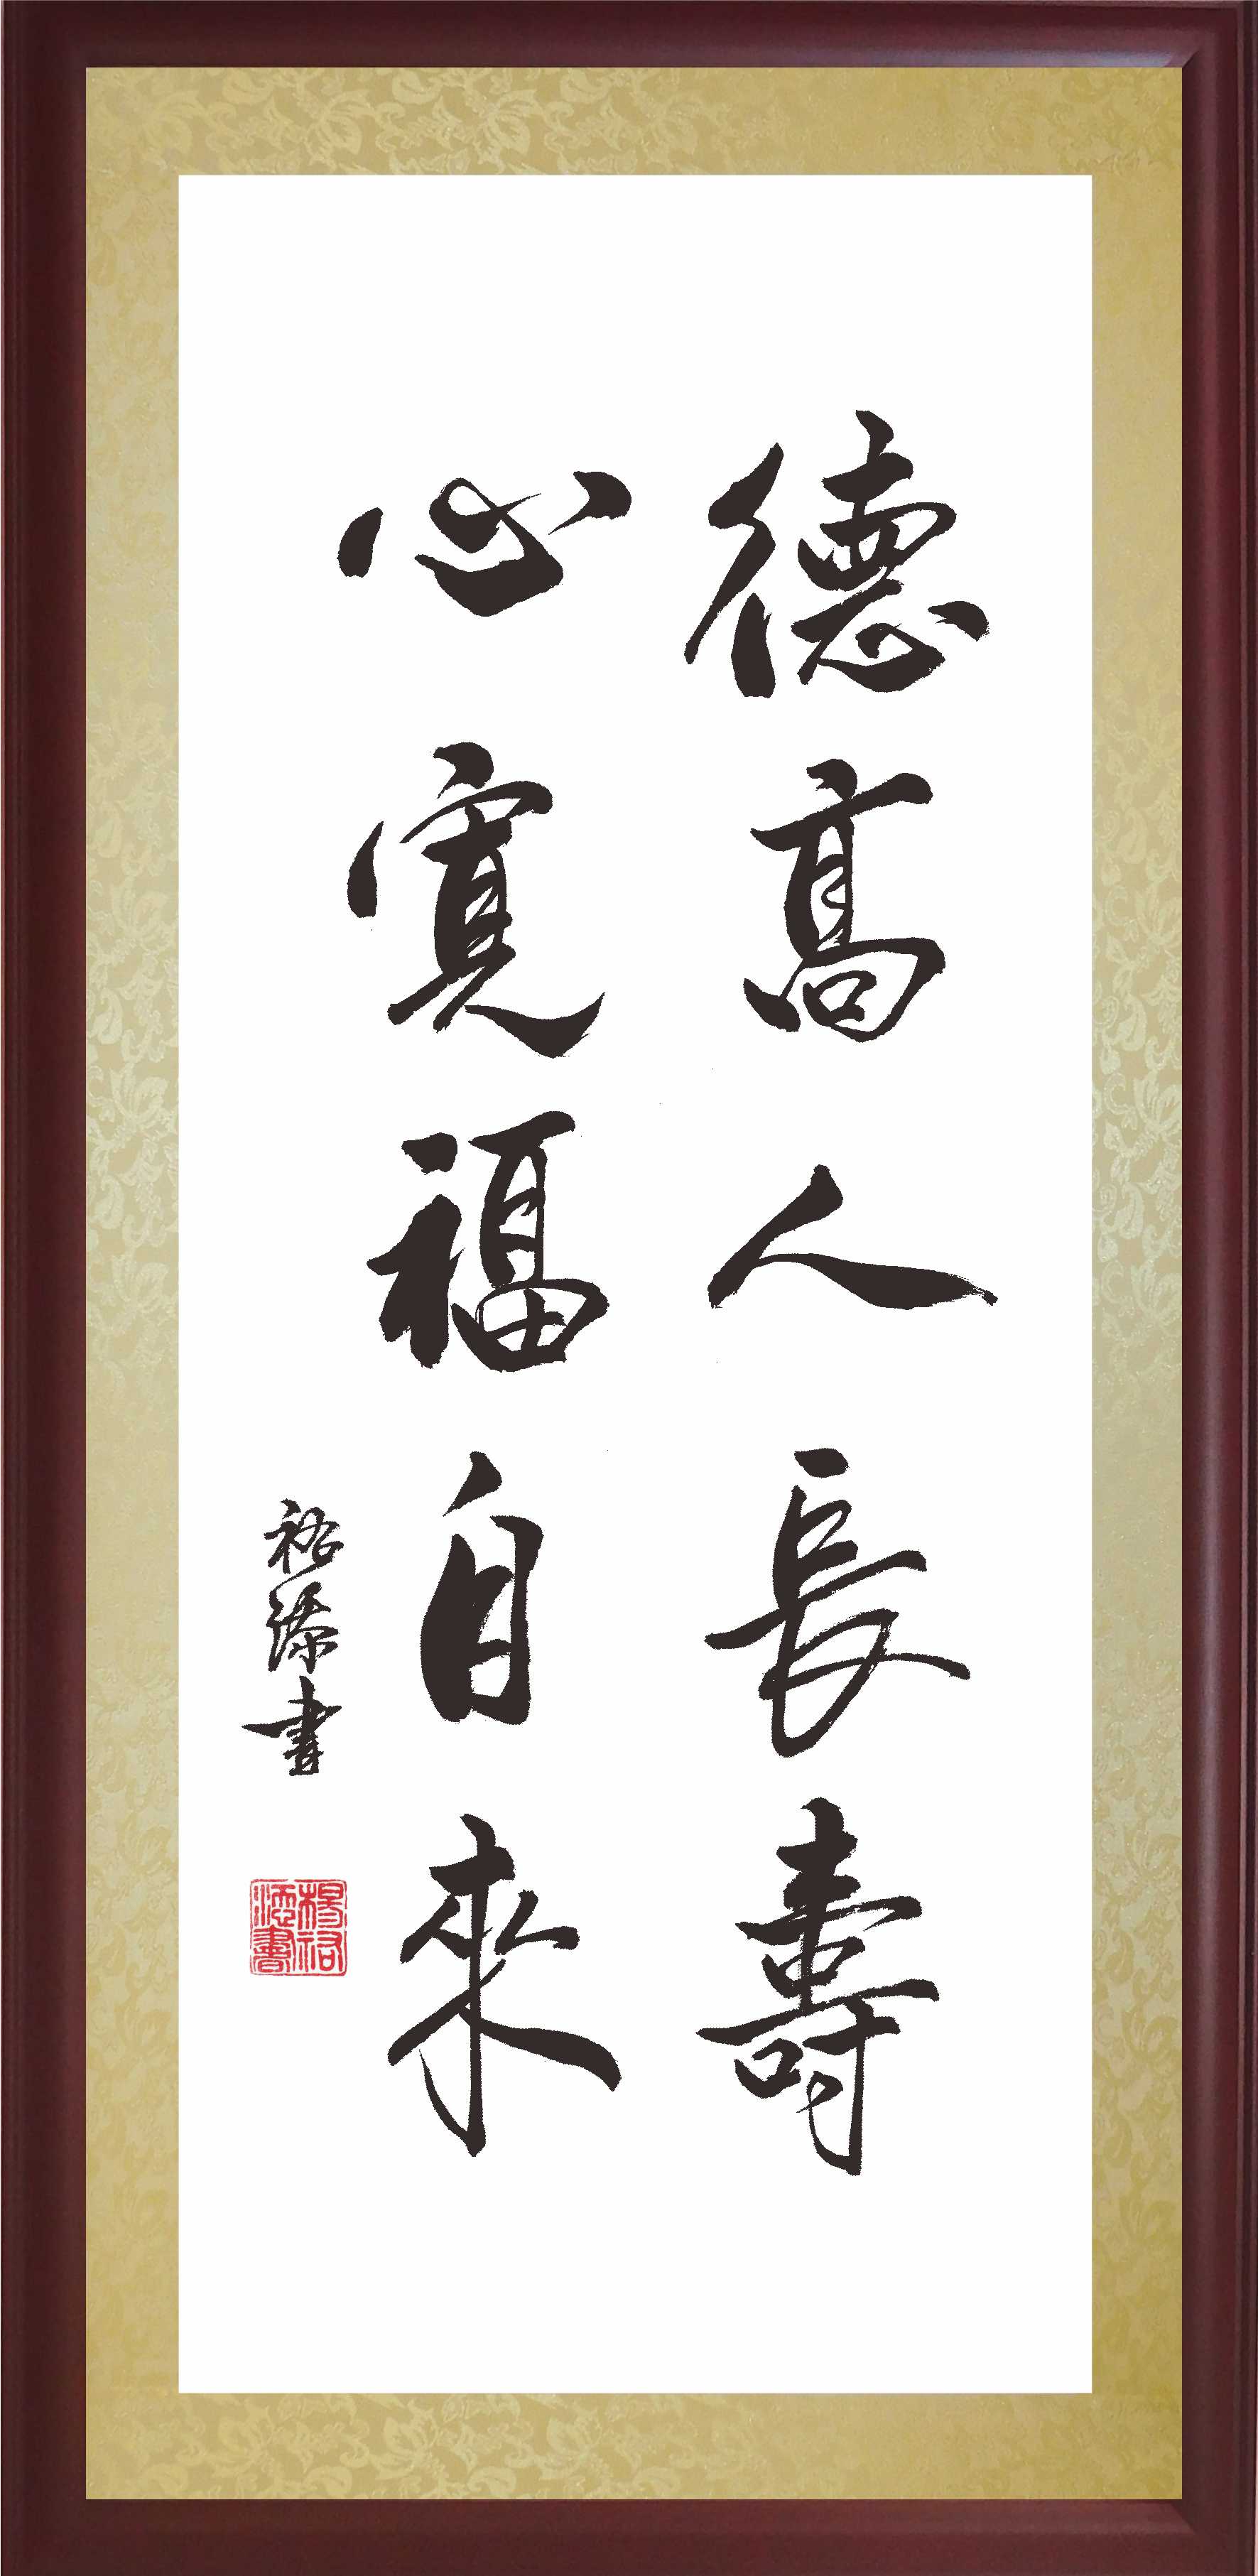 德高人長壽
心寬福自來
祐添書
楊祐
添書